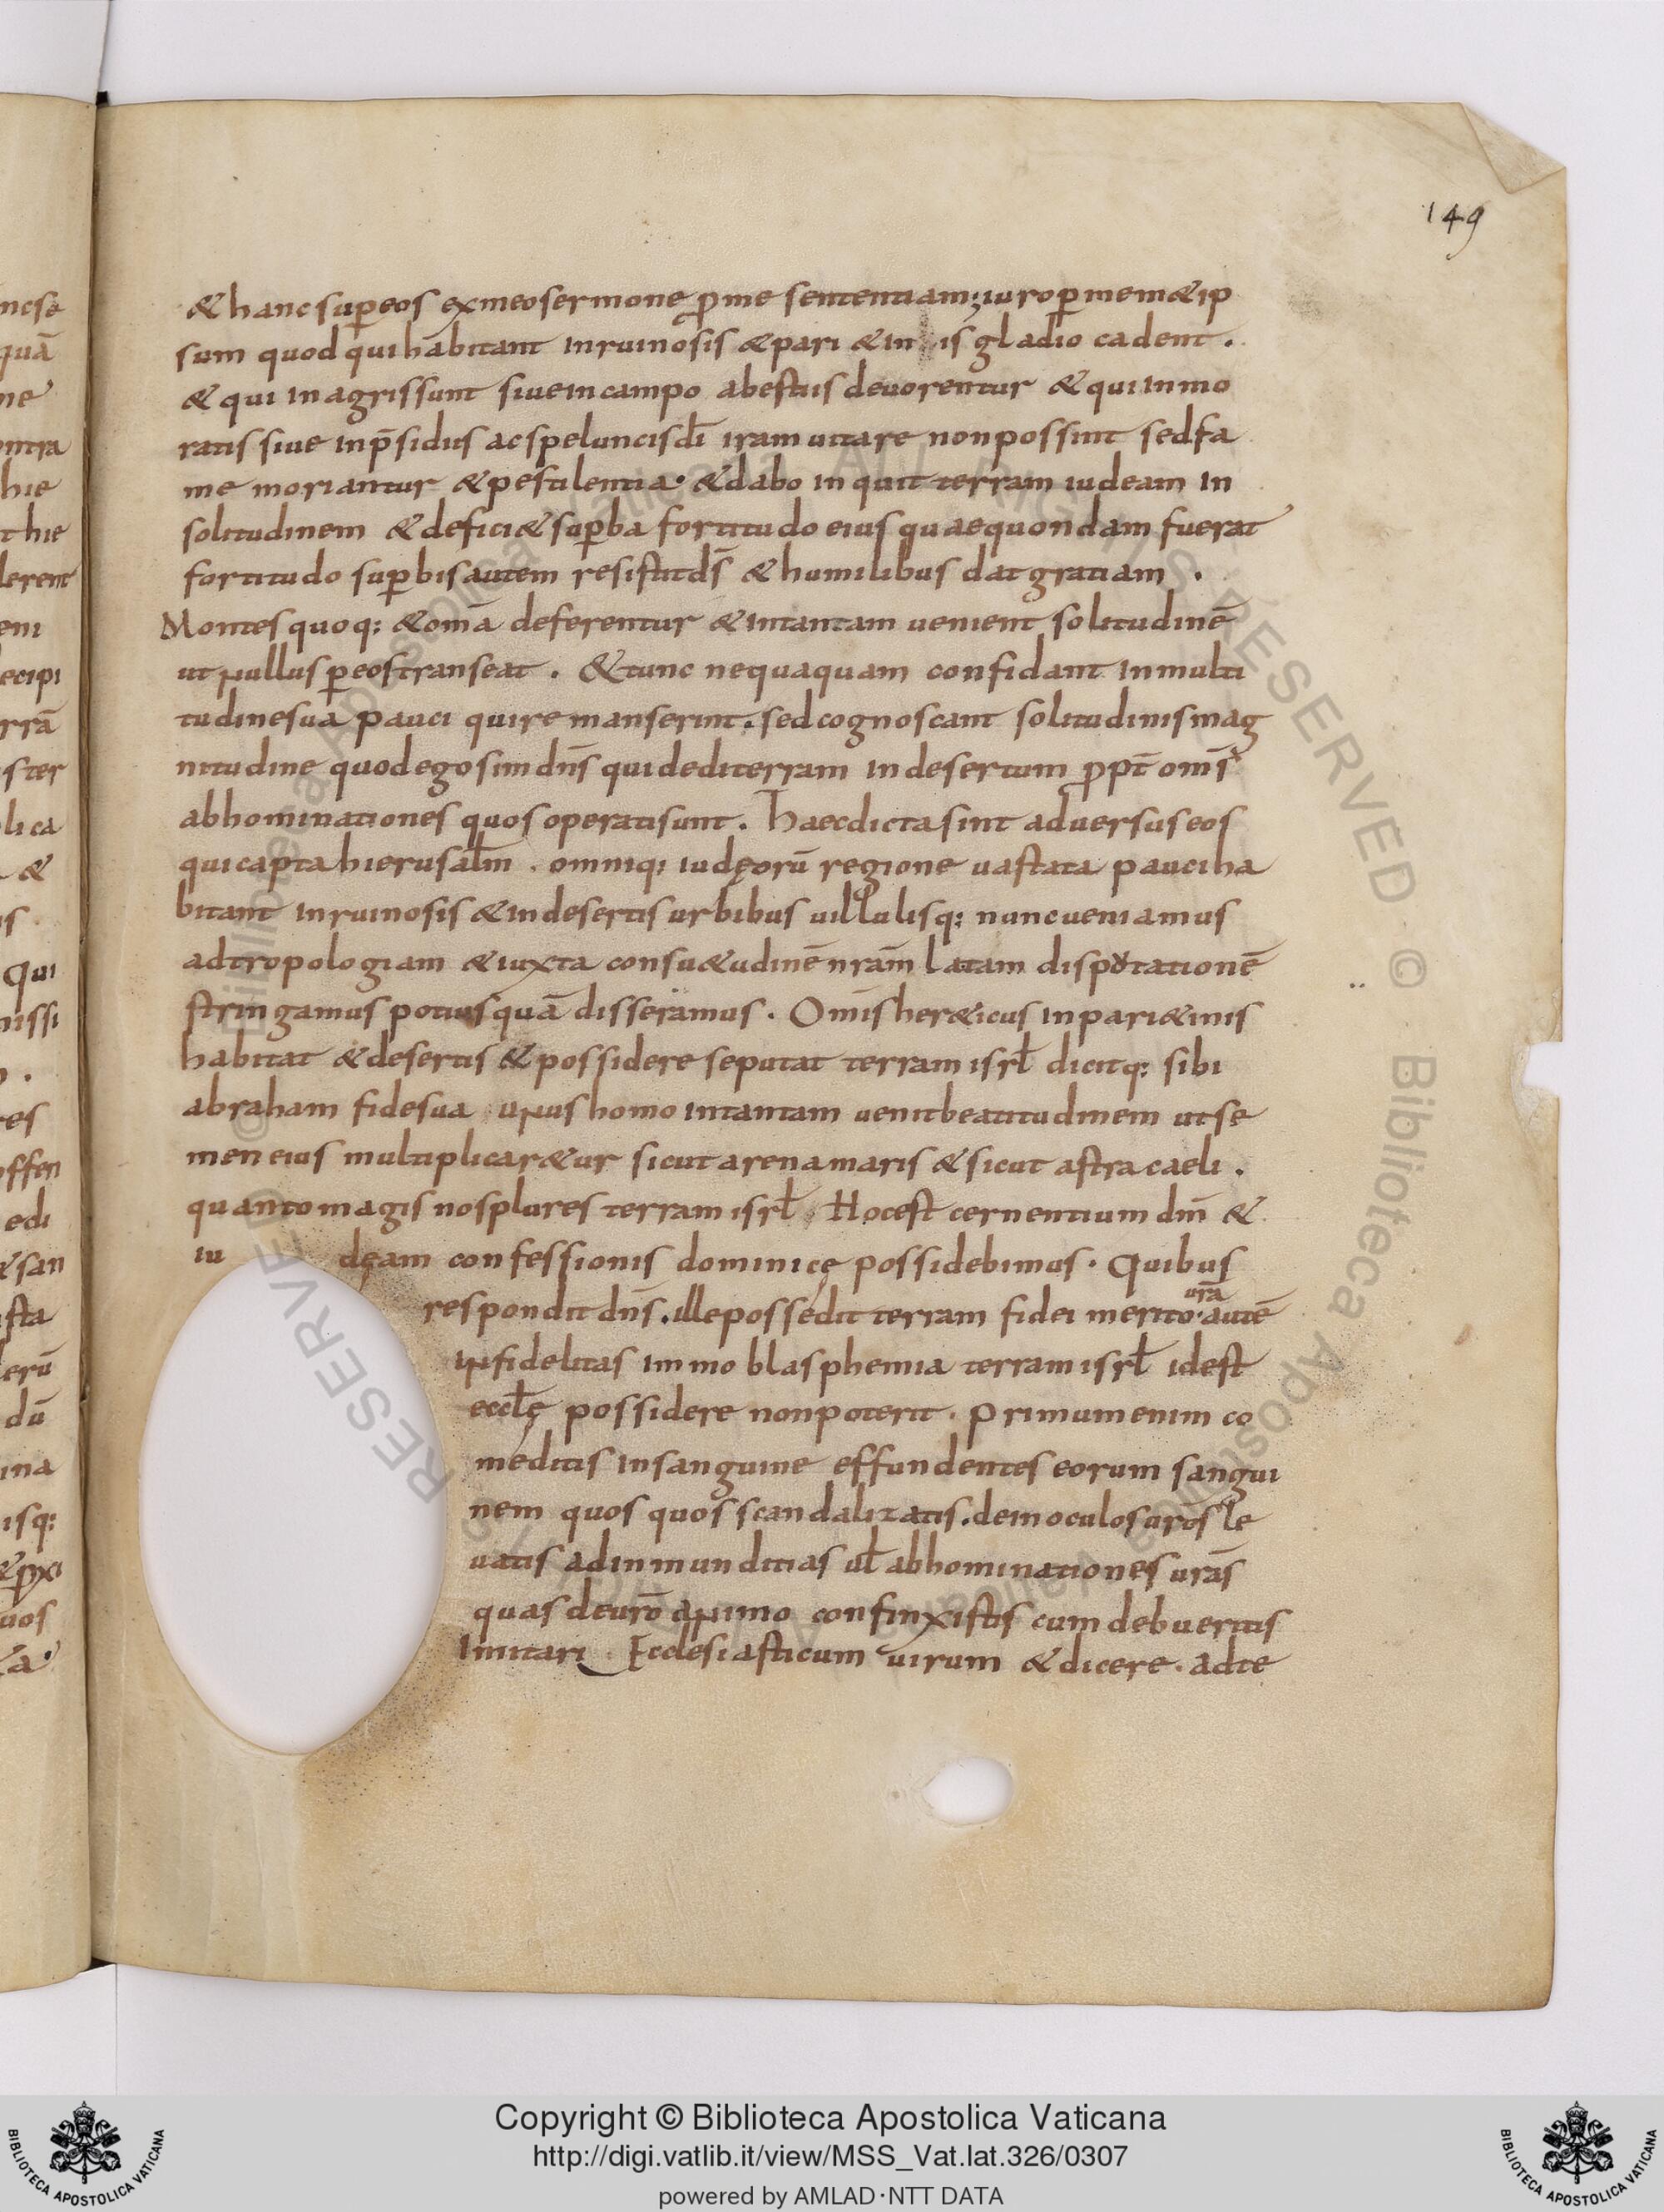 149
& hanc sup̄ eos ex meo sermone ꝓme sententiam; iuro ꝑ mem&ip
sum quod qui habitant in ruinosis & pari&in is gladio cadent .
& qui in agris sunt siue in campo a bestiis deuorentur & qui in mo
ratis siue in p̄sidiis ac speluncis dī iram uitare non possint sed fa
me moriantur & pestilentia . & dabo inquit terram iudeam in
solitudinem & defici& suꝑba fortitudo eius quae quondam fuerat
fortitudo suꝑbis autem resistit ds̄ & humilibus dat gratiam .
Montes quoq: & om̄a deferentur & in tantam uenient solitudinē
ut nullus ꝑ eos transeat . & tunc nequaquam confidant in multi
tudine sua pauci qui remanserint . sed cognoscant solitudinis mag
nitudine quod ego sim dn̄s qui dedi terram in desertum ꝓpt̄ om̄s
abhominationes quos operati sunt . haec dicta sint aduersus eos
qui capta hierusal̄m . omniq: iudęorū regione uastata pauci ha
bitant in ruinosis & in desertis urbibus uillulisq: nunc ueniamus
ad tropologiam & iuxta consu&udinē nr̄am latam disputationē
stringamus potius quā disseramus . Om̄is her&icus in pari&inis
habitat & desertis & possidere se putat terram isrł dicitq: sibi
abraham fide sua unus homo in tantam uenit beatitudinem ut se
men eius multiplicar&ur sicut arena maris & sicut astra caeli .
quanto magis nos plures terram isrł Hoc est cernentium dm̄ &
iu dęam confessionis dominicę possidebimus . Quibus
respondit dn̄s . ille possedit terram fidei merito . autē
ur̄a
infidelitas immo blasphemia terram isrł id est
eccłę possidere non poterit . primum enim co
meditis in sanguine effundentes eorum sangui
nem quos quos scandalizatis . dein oculos ur̄os le
uatis ad inmunditias uł abhominationes ur̄as
quas de ur̄o animo confinxistis cum debueritis
Imitari . Ecclesiasticum uirum & dicere . ad te
ncsē
quā
ne
ontra
hie
t hie
lerent
eni
ecipi
rrā
ster
lica
&
is
qui
nissi
res
offen
edi
& san
sta
lerū
dū
ina
isq:
uos
© Biblioteca Apostolica Vaticana ALL RIGHTS RESERVED
© Biblioteca Apostolica Vaticana ALL RIGHTS RESERVED
BIBLIOTECA APOSTOLICA VATICANA
Copyright © Biblioteca Apostolica Vaticana
http://digi.vatlib.it/view/MSS_Vat.lat.326/0307
powered by AMLAD·NTT DATA
BIBLIOTECA APOSTOLICA VATICANA